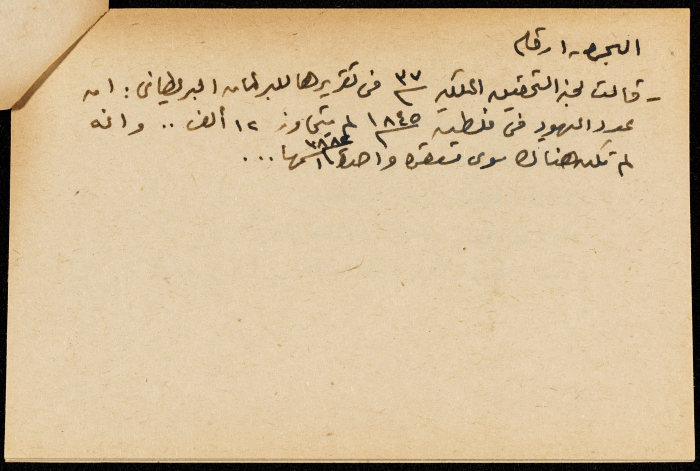 الهجرة - ارقام
- قالت لجنة التحقيق الملكية ٣٧ في تقريرها للبرلمان البريطاني: ان
عدد اليهود في فلسطين ١٨٤٥ لم يتجاوز ١٢ ألف .. وانه
لم تكن هناك سوى مستعمرة واحدة ١٨٨٢ اسمها ...